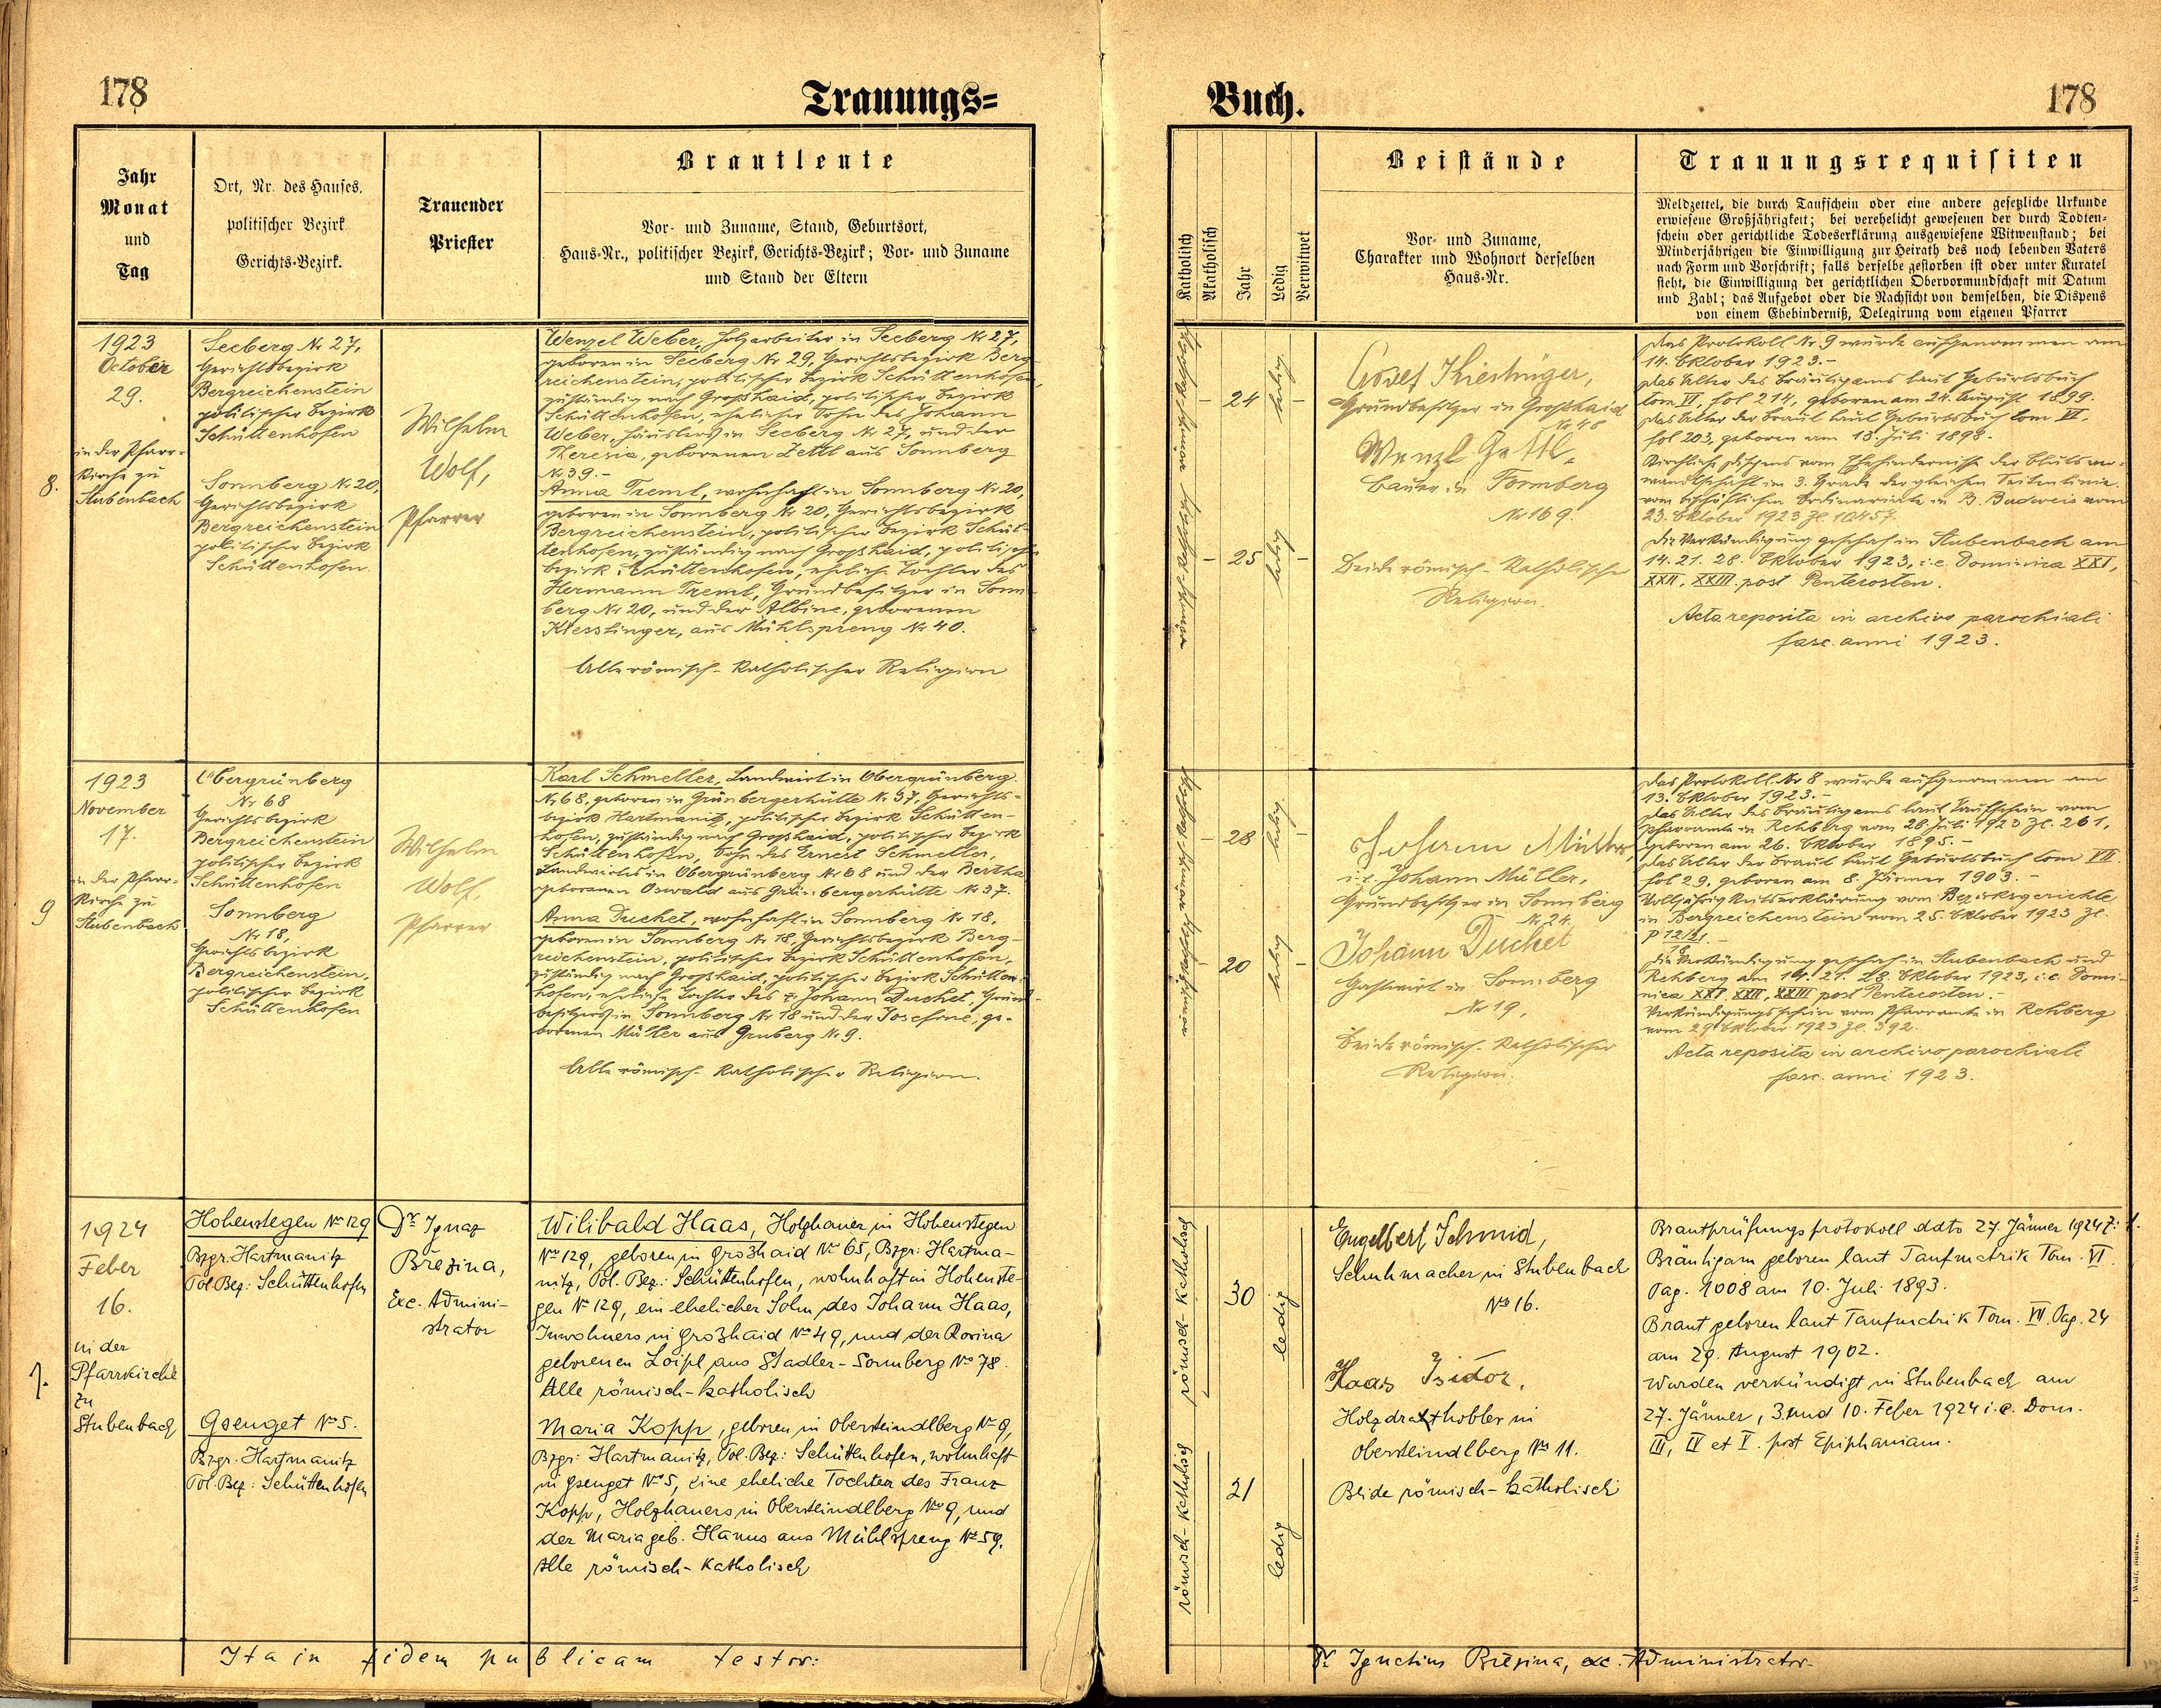 178
Trauungs=
Jahr
Monat
und
Tag
Ort, Nr. des Hauses,
politischer Bezirk
Gerichts-Bezirk.
Trauender
Priester
Brautleute
Vor- und Zuname, Stand, Geburtsort,
Haus-Nr., politischer Bezirk, Gerichts-Bezirk; Vor- und Zuname
und Stand der Eltern
1923
October
29.
in der Pfarr-
kirche zu
Stubenbach
8.
Seeberg Nr 27,
Gerichtsbezirk
Bergreichenstein
politischer Bezirk
Schüttenhofen
Sonnberg Nr 20,
Gerichtsbezirk
Bergreichenstein
politischer Bezirk
Schüttenhofen.
Wilhelm
Wolf,
Pfarrer
Wenzel Weber, Holzarbeiter in Seeberg Nr 27,
geboren in Seeberg Nr 29, Gerichtsbezirk Berg-
reichenstein, politischer Bezirk Schüttenhofen,
zuständig nach Großhaid, politischer Bezirk
Schüttenhofen, ehelicher Sohn des Johann
Weber, Häuslers in Seeberg Nr 27, und der
Theresia, geborenen Zettl aus Sonnberg
Nr 39.-
Anna Treml, wohnhaft in Sonnberg Nr 20,
geboren in Sonnberg Nr 20, Gerichtsbezirk
Bergreichenstein, politischer Bezirk Schüt-
tenhofen, zuständig nach Großhaid, politischer
Bezirk Schüttenhofen, ehelich. Tochter des
Hermann Treml, Grundbesitzer in Sonn-
berg Nr 20, und der Albine, geborenen
Kiesslinger, aus Mühlspreng Nr 40.
Alle römisch-katholischer Religion
1923
November
17.
in der Pfarr-
kirche zu
Stubenbach
9
Obergrünberg
Nr 68
Gerichtsbezirk
Bergreichenstein
politischer Bezirk
Schüttenhofen
Sonnberg
Nr 18,
Gerichtsbezirk
Bergreichenstein,
politischer Bezirk
Schüttenhofen
Wilhelm
Wolf,
Pfarrer
Karl Schmeller, Landwirt in Obergrünberg
Nr 68, geboren in Grünbergerhütte Nr 37, Gerichts-
bezirk Hartmanitz, politischer Bezirk Schütten-
hofen, zuständig nach Großhaid, politischer Bezirk
Schüttenhofen, Sohn des Ernest Schmeller,
Landwirtes in Obergrünberg Nr 68 und der Bertha
geborenen Oswald aus Grünbergerhütte Nr 37.
Anna Duchet, wohnhaft in Sonnberg Nr 18,
geboren in Sonnberg Nr 18, Gerichtsbezirk Berg-
reichenstein, politischer Bezirk Schüttenhofen,
zuständig nach Großhaid, politischer Bezirk Schütten-
hofen, eheliche Tochter des Johann Duchet, Grund-
besitzers in Sonnberg Nr 18 und der Josefine, ge-
borenen Müller aus Gruberg Nr 9.
Alle römisch-katholischer Religion.
1924
Feber
16.
in der
Pfarrkirche
zu
Stubenbach
1.
Hohenstegen No 129
Bzgr. Hartmanitz
Pol. Bez: Schüttenhofen
Gsenget No 5.
Bzgr. Hartmanitz
Pol. Bez: Schüttenhofen
Dr Ignaz
Březina,
Exc. Admini-
strator
Wilibald Haas, Holzhauer in Hohenstegen
No 129, geboren in Großhaid No 65, Bzgr: Hartma-
nitz, Pol. Bez: Schüttenhofen, wohnhaft in Hohenste-
gen No 129, ein ehelicher Sohn des Johann Haas,
Inwohners in Großhaid No 49, und der Rosina
geborenen Loipl aus Stadler-Sonnberg No 78.
Alle römisch-katholisch
Maria Kopp, geboren in Obersteindlberg No 9,
Bzgr: Hartmanitz, Pol. Bez: Schüttenhofen, wohnhaft
in Gsenget No 5, eine eheliche Tochter des Franz
Kopp, Holzhauers in Obersteindlberg No 9, und
der Maria geb. Hanus aus Mühlspreng No 59.
Alle römisch-katholisch
Ita in fidem publicam testor:
Buch.
178
Katholisch
Akatholisch
Jahr
Ledig
Verwitwet
Beistände
Vor- und Zuname,
Charakter und Wohnort derselben
Haus-Nr.
Trauungsrequisiten
Meldzettel, die durch Taufschein oder eine andere gesetzliche Urkunde
erwiesene Großjährigkeit; bei verehelicht gewesenen der durch Todten-
schein oder gerichtliche Todeserklärung ausgewiesene Witwenstand; bei
Minderjährigen die Einwilligung zur Heirath des noch lebenden Vaters
nach Form und Vorschrift; falls derselbe gestorben ist oder unter Kuratel
steht, die Einwilligung der gerichtlichen Obervormundschaft mit Datum
und Zahl; das Aufgebot oder die Nachsicht von demselben, die Dispens
von einem Ehehinderniß, Delegirung vom eigenen Pfarrer
römisch-katholisch
römisch-katholisch
24
ledig
25
ledig
Kieslinger,
Grundbesitzer in Großhaid
Nr 48
Wenzl Zettl,
Bauer in
Nr 169.
Beide römisch-katholischer
Religion.
Das Protokoll Nr 9 wurde aufgenommen am
14. Oktober 1923.-
Das Alter des Bräutigams laut Geburtsbuch
tom VI, fol 214, geboren am 24. August 1899.
Das Alter der Braut laut Geburtsbuch tom VI.
fol 203, geboren am 13. Juli 1898.
Kirchliche Dispens vom Ehehindernisse der Blutsver-
wandtschaft im 3. Grade der gleichen Seitenlinie
vom bischöflichen Ordinariate in B. Budweis vom
23. Oktober 1923 Zl. 10457.
Die Verkündigung geschah in Stubenbach am
14. 21. 28. Oktober 1923, i.e. Dominica XXI,
XXII, XXIII post Pentecosten.
Acta reposita in archivo parochiali
fasc. anni 1923.
römisch-katholisch
römisch-katholisch
28
ledig
20
ledig
Johann Müller,
i.e. Johann Müller,
Grundbesitzer in Sonnberg
Nr 24
Johann Duchet
Gastwirt in Sonnberg
Nr 19,
Beide römisch-katholischer
Religion.
Das Protokoll Nr 8 wurde aufgenommen am
13. Oktober 1923.-
Das Alter des Bräutigams laut Taufschein vom
Pfarramte in Rehberg vom 28. Juli 1923 Zl. 261,
geboren am 26. Oktober 1895.-
Das Alter der Braut laut Geburtsbuch tom VII.
fol 29. geboren am 8. Jänner 1903.-
Volljährigkeitserklärung vom Bezirksgerichte
in Bergreichenstein vom 25. Oktober 1923 Zl.
P 12/21
18
Die Verkündigung geschah in Stubenbach und
Rehberg am 14. 21. 28. Oktober 1923, i.e. Domi-
nica XXI, XXII, XXIII post Pentecosten.-
Verkündigungsschein vom Pfarramte in Rehberg
vom 29. Oktober 1923 Zl. 392.
Acta reposita in archivo parochiali
fasc. anni 1923.
römisch-katholisch
römisch-katholisch
30
ledig
21
ledig
Engelbert Schmid,
Schuhmacher in Stubenbach
No 16.
Haas Isidor,
Holzdrahthobler in
Obersteindlberg No 11.
Beide römisch-katholisch
Brautprüfungsprotokoll ddto 27. Jänner 1924 Z: 1.
Bräutigam geboren laut Taufmatrik Tom. VI.
Pag. 1008 am 10. Juli 1893.
Braut geboren laut Taufmatrik Tom. VII. Pag. 24
am 29. August 1902.
Wurden verkündigt in Stubenbach am
27. Jänner, 3. und 10. Feber 1924 i.e. Dom.
III, IV et V. post Epiphaniam.
Dr Ignatius Březina, exc. Administrator.